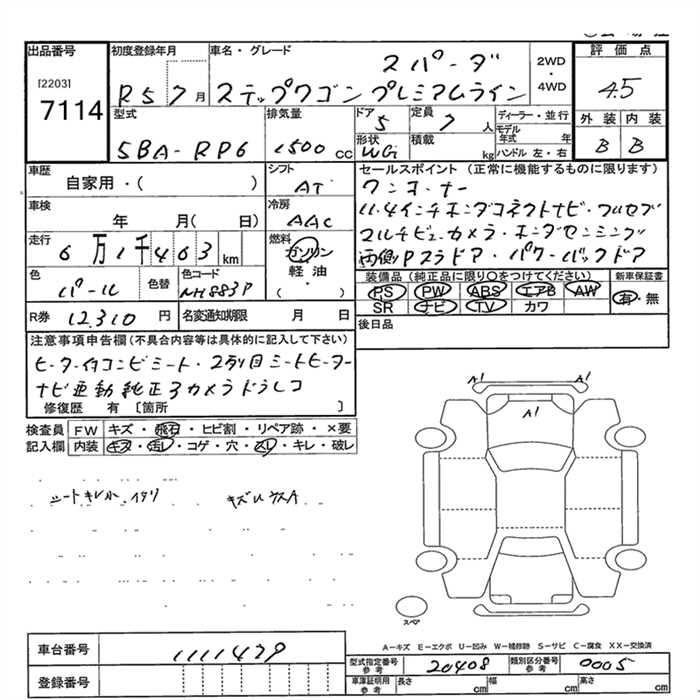 出品番号 初度登録年月 車名・グレード 2WD・4WD 評価点
[2203]
7114 R5 7月 スパーダ 4.5
ステップワゴン プレミアムライン
型式 排気量 ドア 5 定員 7人 ディーラー・並行 外装 内装
5BA-RP6 1500cc 形状 WG 積載 kg モデル年式 年 ハンドル 左・右 B B
車歴 シフト セールスポイント (正常に機能するものに限ります)
自家用・( ) AT ワンオーナー
車検 冷房 11.4インチホンダコネクトナビ・フルセグ
年 月( 日) AAC マルチビューカメラ・ホンダセンシング
走行 燃料 両側Pスラドア・パワーバックドア
6万1千463km ガソリン 軽油 ( )
色 色替 色コード 装備品 (純正品に限り○をつけてください) 新車保証書
パール NH883P PS PW ABS エアB AW 有・無
SR ナビ TV カワ
R券 12,310円 名変通知期限 月 日 後日品
注意事項申告欄(不具合内容等は具体的に記入して下さい)
ヒーター付コンビシート・2列目シートヒーター
ナビ連動純正3カメラドラレコ
修復歴 有 [箇所 ]
検査員 FW キズ・飛石・ヒビ割・リペア跡・×要
記入欄 内装 キズ・汚レ・コゲ・穴・スレ・キレ・破レ
A1 A1
A1
シートキレ小
キズU
スペア
A-キズ E-エクボ U-凹み W-補修跡 S-サビ C-腐食 XX-交換済
車台番号 1111429 型式指定番号 参考 20408 類別区分番号 参考 0005
登録番号 車庫証明用 参考 長さ cm 幅 cm 高さ cm